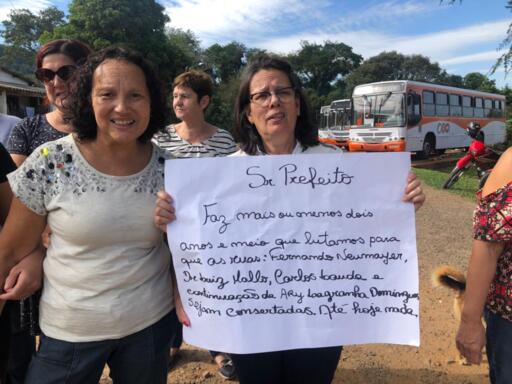 Sr Prefeito
Faz mais ou menos dois
anos e meio que lutamos para
que as ruas: Fernando Neumayer,
Dr Luiz Mallo, Carlos Lauda e
continuação da Ary Lagranha Domingues
Sejam consertadas. Até hoje nada.